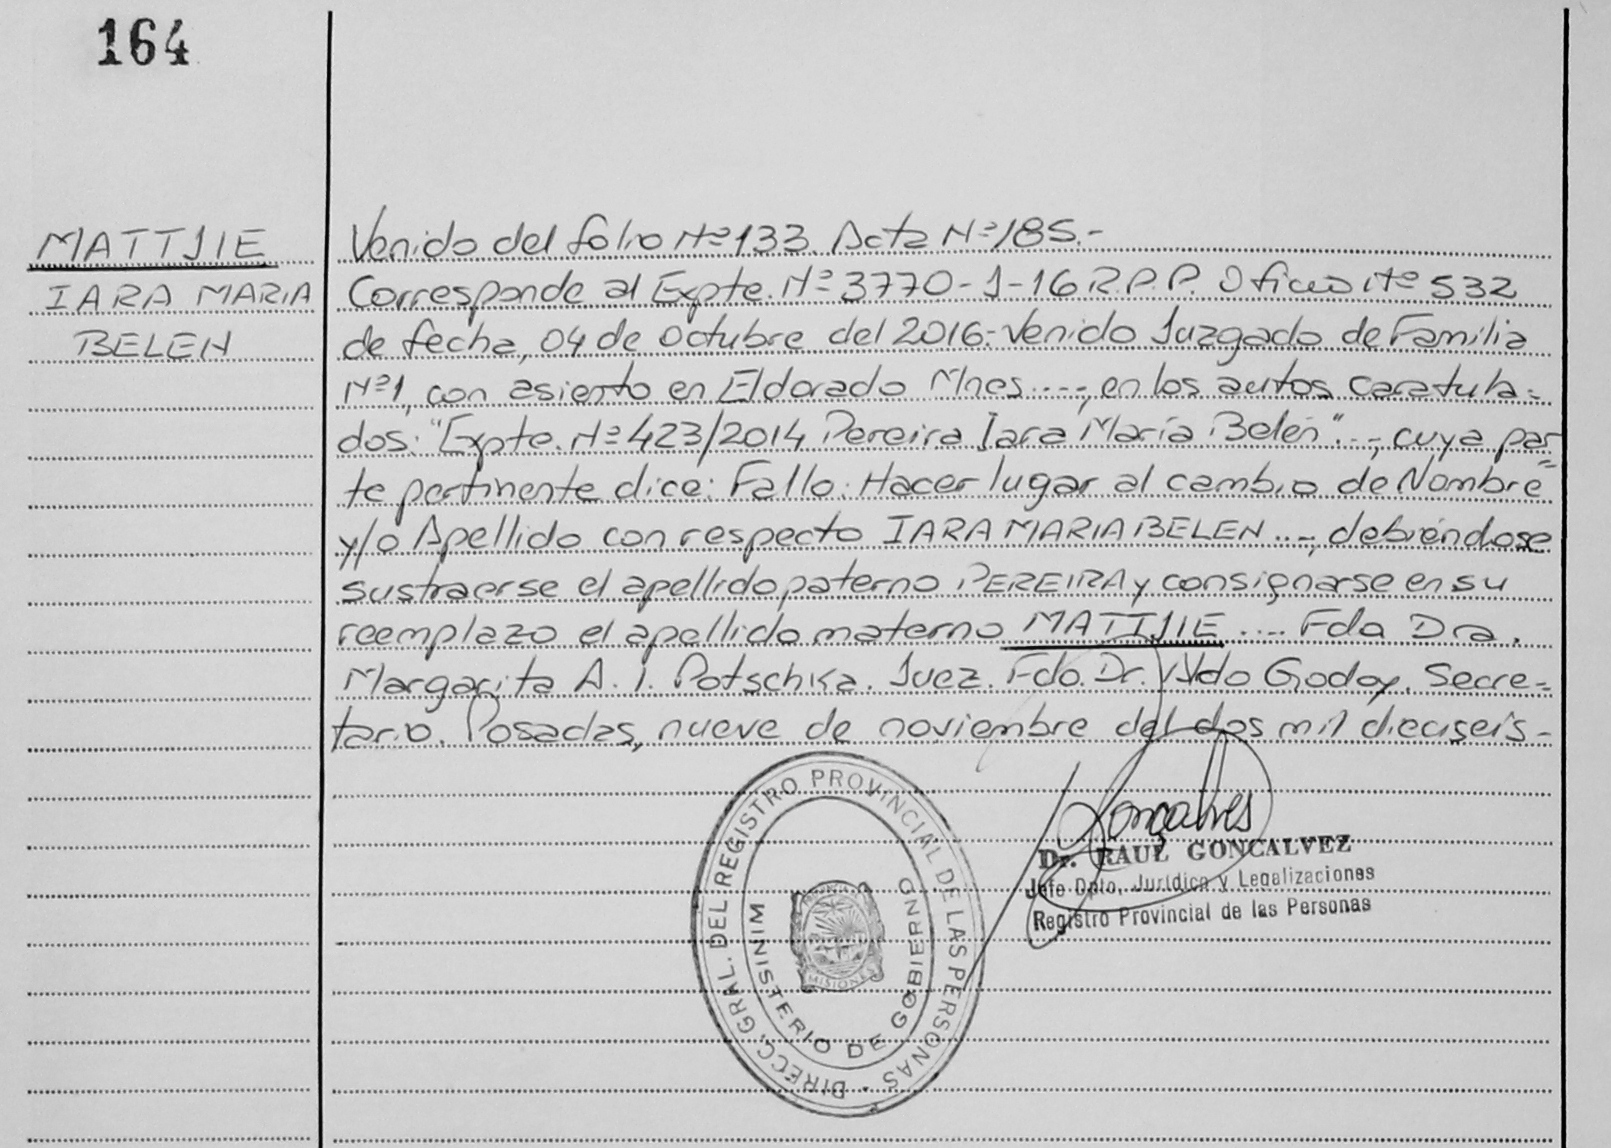 164
MATTJIE
IARA MARIA
BELEN
Venido del folio Nº 133. Acta Nº 185.-
Corresponde al Expte. Nº 3770-J-16 R.P.P. Oficio Nº 532
de fecha, 04 de Octubre del 2016.- Venido Juzgado de Familia
Nº1, con asiento en Eldorado Mnes...-, en los autos caratula-
dos: "Expte. Nº 423/2014 Pereira Iara María Belén"..-, cuya par-
te pertinente dice: Fallo: Hacer lugar al cambio de Nombre
y/o Apellido con respecto IARA MARIA BELEN ...-, debiéndose
sustraerse el apellido paterno PEREIRA y consignarse en su
reemplazo el apellido materno MATTJIE ...- Fdo Dra.
Margarita A. J. Potschka. Juez. Fdo. Dr. Aldo Godoy. Secre-
tario. Posadas, nueve de noviembre del dos mil dieciseis-
DIRECC. GRAL. DEL REGISTRO PROVINCIAL DE LAS PERSONAS
MINISTERIO DE GOBIERNO
MISIONES
Gonçalves
Dr. RAUL GONCALVEZ
Jefe Dpto. Jurídica y Legalizaciones
Registro Provincial de las Personas